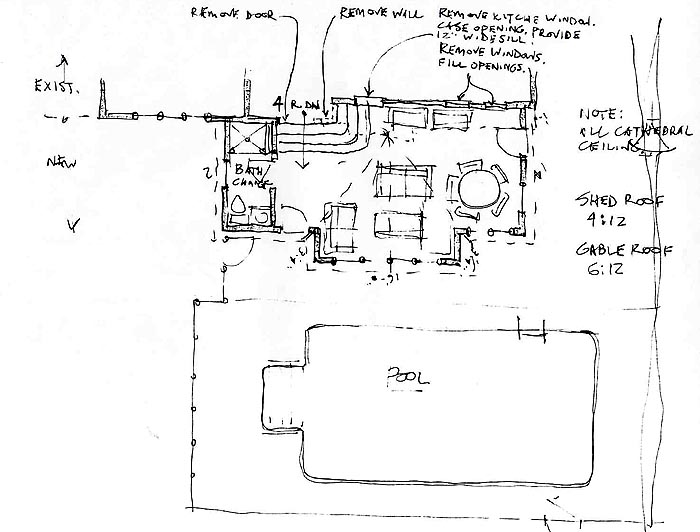 REMOVE DOOR
REMOVE WALL
REMOVE KITCHE WINDOW.
CASE OPENING. PROVIDE
12" WIDE SILL.
REMOVE WINDOWS.
FILL OPENINGS.
EXIST.
NEW
4 R. DN
BATH
CHANGE
NOTE:
ALL CATHEDRAL
CEILING
SHED ROOF
4:12
GABLE ROOF
6:12
POOL